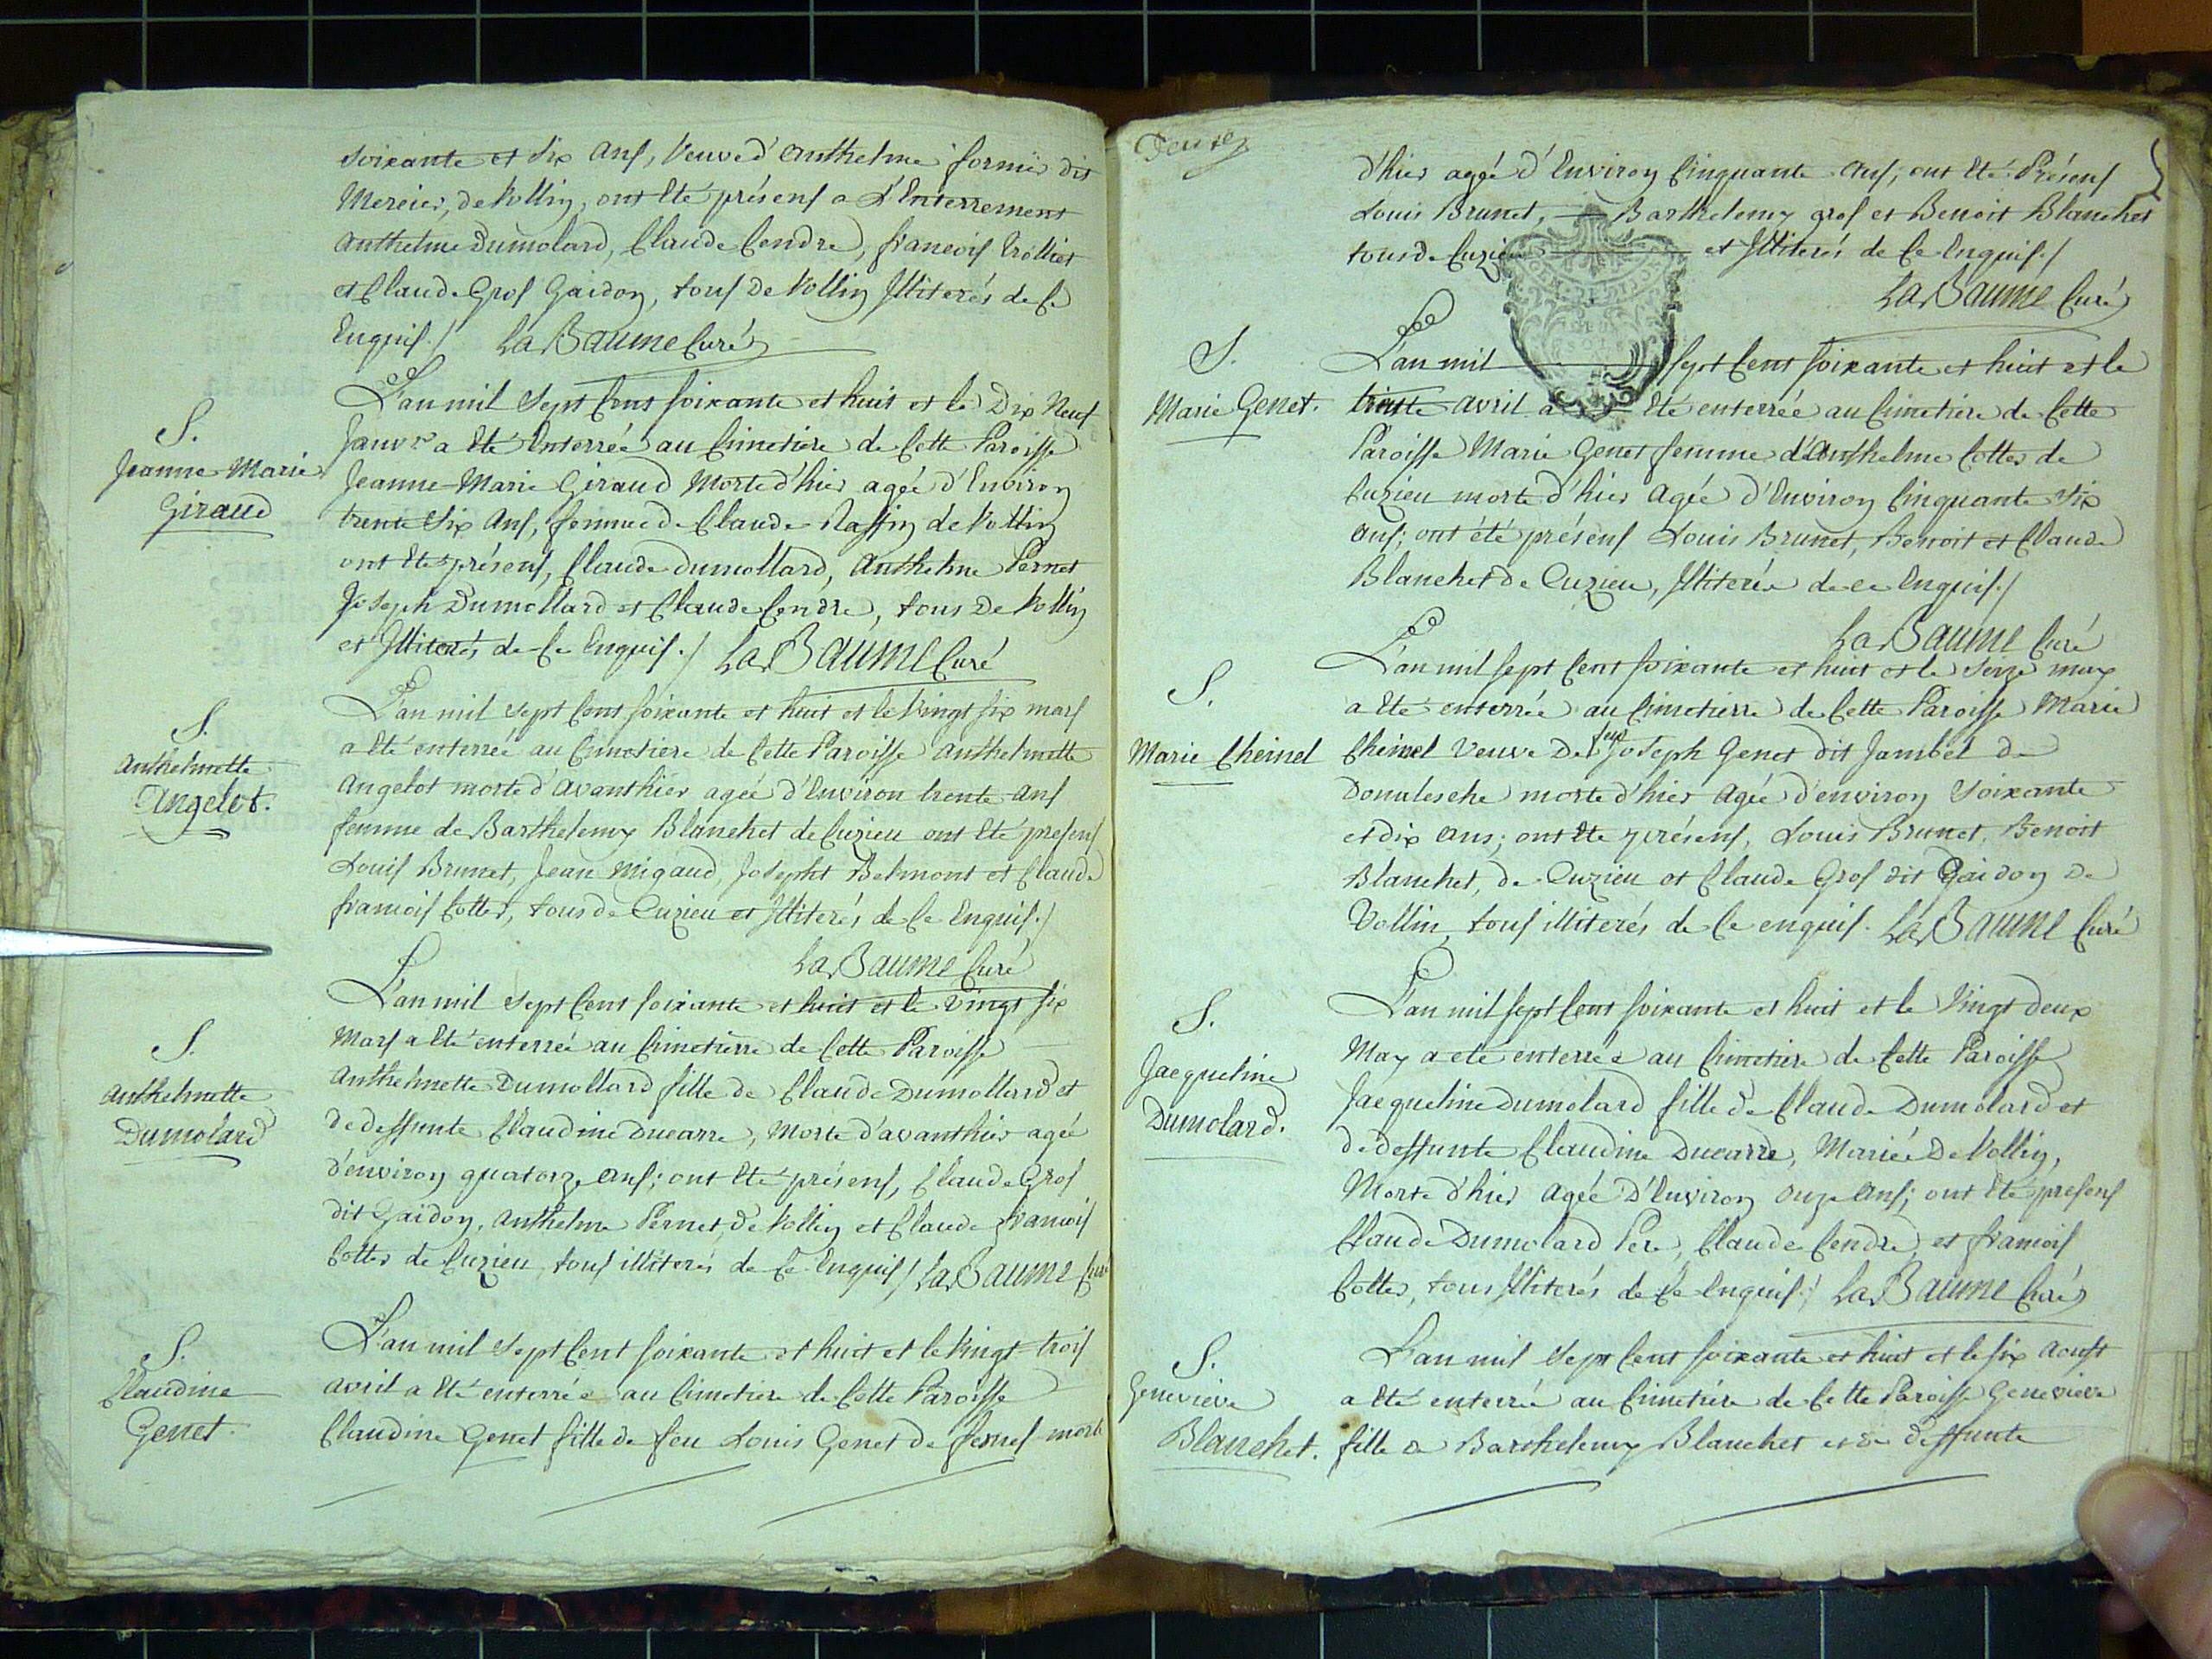 soixante et dix ans, Veuve d'Anthelme fornier dit
Mercier, de Vollin, ont été présens a L'Enterrement
Anthelme Dumolard, Claude Cendre, francois Trolliet
et Claude Gros Gaidon, tous de Vollin Illiterés de Ce
Enquis./ La Baume Curé
S.
Jeanne-Marie
Giraud
L'an mil Sept Cent soixante et huit et le Dix Neuf
Janvr a Eté Enterrée au Cimetiere de Cette Paroisse
Jeanne-Marie Giraud Morte d'hier agée d'Environ
trente Six Ans, femme de Claude Raffin de Vollin
ont Eté présens, Claude Dumollard, Anthelme Pernet
Joseph Dumollard et Claude Cendre, tous De Vollin
et Illiterés de Ce Enquis./ La Baume Curé
S.
Anthelmette
Angelot.
L'an mil Sept Cent soixante et huit et le Vingt six mars
a Eté enterrée au Cimetiere de Cette Paroisse Anthelmette
Angelot morte d'avanthier agée d'Environ trente ans
femme de Barthelemy Blanchet de Cuzieu ont Eté presens
Louis Brunet, Jean Migaud, Josepht Belmont et Claude
francois Cottes, tous de Cuzieu et Illiterés de Ce Enquis./
La Baume Curé
S.
Anthelmette
Dumolard
L'an mil Sept Cent soixante et huit et le Vingt six
Mars a Eté enterrée au Cimetierre de Cette Paroisse
Anthelmette Dumollard fille de Claude Dumollard et
de deffunte Claudine Ducarre, Morte d'avanthier agée
d'environ quatorze ans; ont Eté présens, Claude Gros
dit Gaidon, Anthelme Pernet, de Vollin et Claude francois
Cottes de Cuzieu, tous illiterés de Ce Enquis/ La Baume Curé
S.
Claudine
Genet.
L'an mil Sept Cent soixante et huit et le Vingt-trois
avril a Eté enterrée au Cimetiere de Cette Paroisse
Claudine Genet fille de feu Louis Genet de morte
d'hier agée d'Environ Cinquante Ans; ont Eté Présens
Louis Brunet, Barthelemy gros et Benoit Blanchet
tous de Cuzieu et Illiterés de Ce Enquis./
La Baume Curé
S.
Marie Genet.
L'an mil Sept Cent soixante et huit et le
trente avril a Eté enterrée au Cimetiere de Cette
Paroisse Marie Genet femme d'Anthelme Cottes de
Cuzieu morte d'hier Agée d'Environ Cinquante Six
ans; ont été présens Louis Brunet, Benoit et Claude
Blanchet de Cuzieu, Illiterés de ce Enquis./
La Baume Curé
S.
Marie Cheinel
L'an mil Sept Cent soixante et huit et le Seize may
a Eté enterrée au Cimetierre de Cette Paroisse Marie
Cheinel Veuve De feu Joseph Genet dit Jambel de
Donalesche morte d'hier Agée d'environ Soixante
et dix ans; ont Eté présens, Louis Brunet, Benoit
Blanchet, de Cuzieu et Claude Gros dit Gaidon de
Vollin, tous illiterés de Ce enquis. La Baume Curé
S.
Jacqueline
Dumolard.
L'an mil Sept Cent soixante et huit et le Vingt deux
May a eté enterrée au Cimetiere de Cette Paroisse
Jacqueline Dumolard fille de Claude Dumolard et
de deffunte Claudine Ducarre, Mariée De Vollin,
Morte d'hier Agée D'Environ Onze Ans; ont Eté presens
Claude Dumolard Pere, Claude Cendre, et francois
Cottes, tous Illiterés de Ce Enquis./ La Baume Curé
S.
Genevieve
Blanchet.
L'an mil Sept Cent soixante et huit et le six Aoust
a Eté enterrée au Cimetiere de Cette Paroisse Genevieve
fille de Barthelemy Blanchet et de deffunte